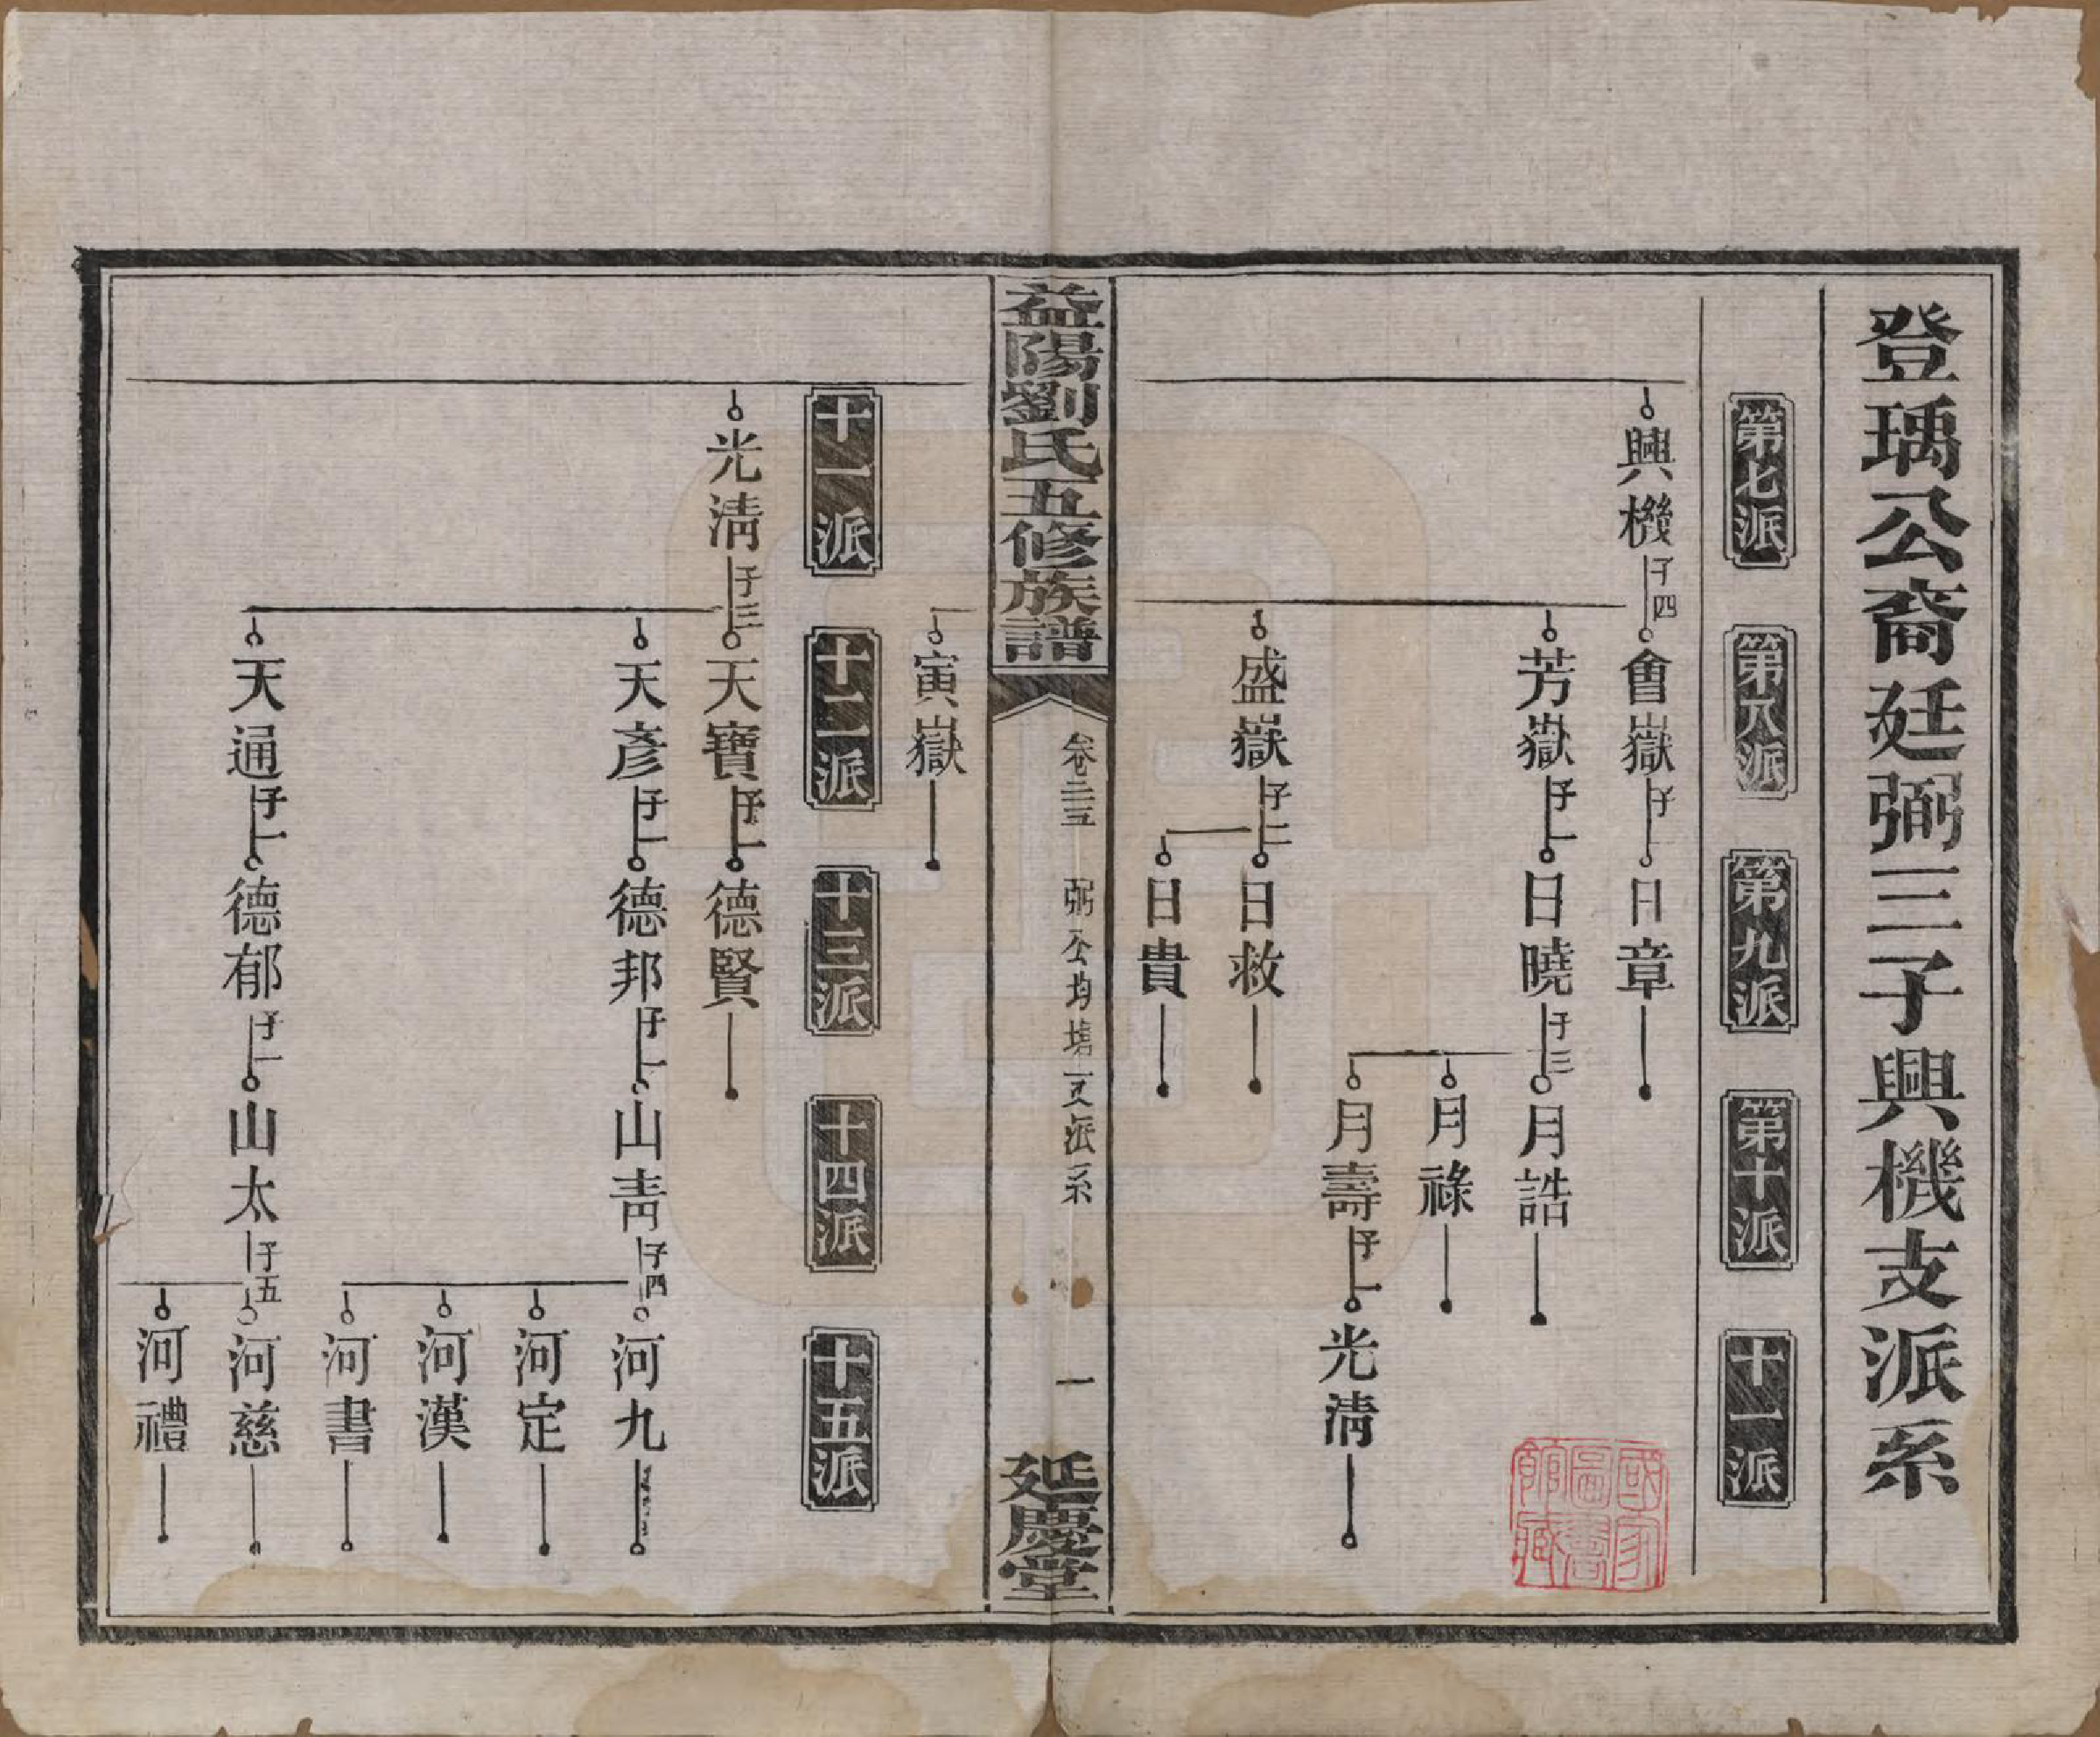 登瑀公裔廷弼三子興機支派系
第七派
第八派
第九派
第十派
十一派
興機 子四
會嶽 子一
日章
芳嶽 子一
日曉 子三
月誥
月祿
月壽 子一
光淸
盛嶽 子二
日救
日貴
國家圖書館藏
益陽劉氏五修族譜
卷三五
弼公均塘支派系
一
延慶堂
寅嶽
十一派
十二派
十三派
十四派
十五派
光淸 子三
天寶 子一
德賢
天彥 子一
德邦 子一
山靑 子四
河九
河定
河漢
河書
天通 子一
德郁 子一
山太 子五
河慈
河禮